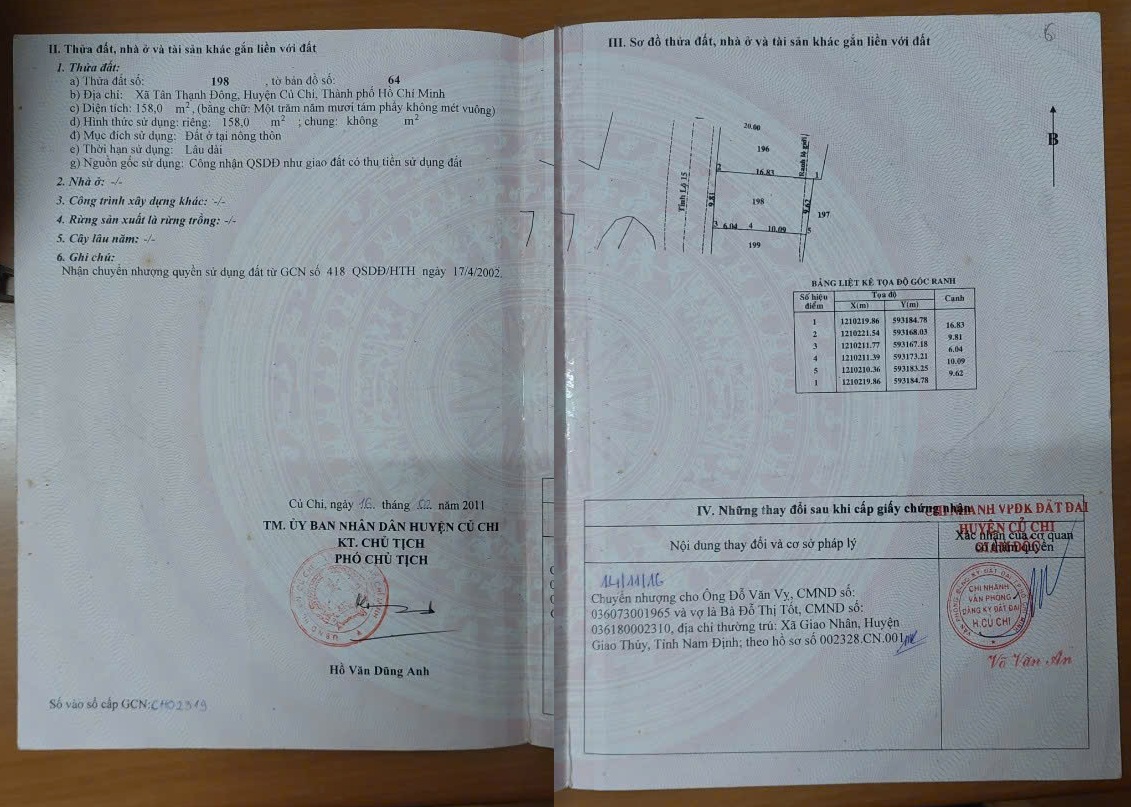 II. Thửa đất, nhà ở và tài sản khác gắn liền với đất
1. Thửa đất:
a) Thửa đất số: 198 , tờ bản đồ số: 64
b) Địa chỉ: Xã Tân Thạnh Đông, Huyện Củ Chi, Thành phố Hồ Chí Minh
c) Diện tích: 158,0 m², (bằng chữ: Một trăm năm mươi tám phẩy không mét vuông)
d) Hình thức sử dụng: riêng: 158,0 m² ; chung: không m²
đ) Mục đích sử dụng: Đất ở tại nông thôn
e) Thời hạn sử dụng: Lâu dài
g) Nguồn gốc sử dụng: Công nhận QSDĐ như giao đất có thu tiền sử dụng đất
2. Nhà ở: -/-
3. Công trình xây dựng khác: -/-
4. Rừng sản xuất là rừng trồng: -/-
5. Cây lâu năm: -/-
6. Ghi chú:
Nhận chuyển nhượng quyền sử dụng đất từ GCN số 418 QSDĐ/HTH ngày 17/4/2002.
Củ Chi, ngày 16 tháng 02 năm 2011
TM. ỦY BAN NHÂN DÂN HUYỆN CỦ CHI
KT. CHỦ TỊCH
PHÓ CHỦ TỊCH
Hồ Văn Dũng Anh
Số vào sổ cấp GCN: CH02319
III. Sơ đồ thửa đất, nhà ở và tài sản khác gắn liền với đất
6
B
20.00
196
Ranh lộ giới
2 16.83 1
Tỉnh Lộ 15
9.81
198
9.62
197
3 6.04 4 10.09 5
199
BẢNG LIỆT KÊ TỌA ĐỘ GÓC RANH
Số hiệu điểm Tọa độ Cạnh
X(m) Y(m)
1 1210219.86 593184.78
16.83
2 1210221.54 593168.03
9.81
3 1210211.77 593167.18
6.04
4 1210211.39 593173.21
10.09
5 1210210.36 593183.25
9.62
1 1210219.86 593184.78
IV. Những thay đổi sau khi cấp giấy chứng nhận
CHI NHÁNH VPĐK ĐẤT ĐAI
HUYỆN CỦ CHI
GIÁM ĐỐC
Nội dung thay đổi và cơ sở pháp lý
Xác nhận của cơ quan
có thẩm quyền
14/11/16
Chuyển nhượng cho Ông Đỗ Văn Vỵ, CMND số:
036073001965 và vợ là Bà Đỗ Thị Tốt, CMND số:
036180002310, địa chỉ thường trú: Xã Giao Nhân, Huyện
Giao Thủy, Tỉnh Nam Định; theo hồ sơ số 002328.CN.001
CHI NHÁNH
VĂN PHÒNG
ĐĂNG KÝ ĐẤT ĐAI
H.CỦ CHI
Võ Văn An